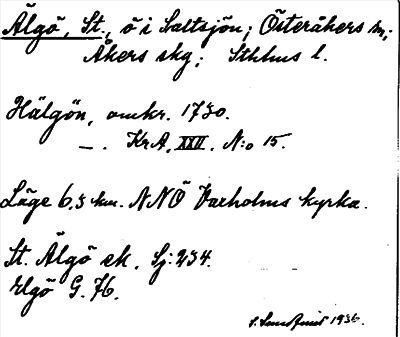 Älgö, St., ö i Saltsjön; Österåkers sn;
Åkers skg; Sthlms l.
Hälgön, omkr. 1730.
— . KrA. XXII. N:o 15.
Läge 6,5 km. NNÖ Vaxholms kyrka.
St. Älgö ek. Sj: 234.
Elgö G. 76.
1936.